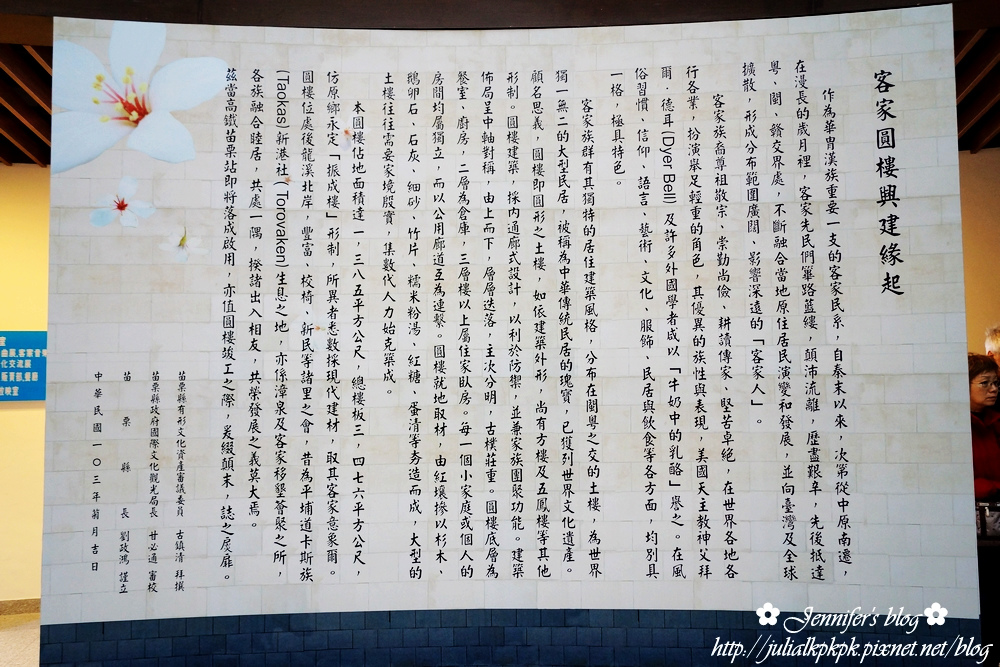 客家圓樓興建緣起
作為華冑漢族重要一支的客家民系，自秦末以來，次第從中原南遷，
在漫長的歲月裡，客家先民們篳路藍縷，顛沛流離，歷盡艱辛，先後抵達
粵、閩、贛交界處，不斷融合當地原住居民演變和發展，並向臺灣及全球
擴散，形成分布範圍廣闊、影響深遠的「客家人」。
客家族裔尊祖敬宗、崇勤尚儉、耕讀傳家、堅苦卓絕，在世界各地各
行各業，扮演舉足輕重的角色，其優異的族性與表現，美國天主教神父拜
爾．德耳(Dyer Bell) 及許多外國學者咸以「牛奶中的乳酪」譽之。在風
俗習慣、信仰、語言、藝術、文化、服飾、民居與飲食等各方面，均別具
一格，極具特色。
客家族群有其獨特的居住建築風格，分布在閩粵之交的土樓，為世界
獨一無二的大型民居，被稱為中華傳統民居的瑰寶，已獲列世界文化遺產。
顧名思義，圓樓即圓形之土樓，如依建築外形，尚有方樓及五鳳樓等其他
形制。圓樓建築，採內通廊式設計，以利於防禦，並兼家族團聚功能。建築
佈局呈中軸對稱，由上而下，層層迭落，主次分明，古樸莊重。圓樓底層為
餐室、廚房，二層為倉庫，三層樓以上屬住家臥房。每一個小家庭或個人的
房間均屬獨立，而以公用廊道互為連繫。圓樓就地取材，由紅壤摻以杉木、
鵝卵石、石灰、細砂、竹片、糯米粉湯、紅糖、蛋清等夯造而成，大型的
土樓往往需要家境殷實，集數代人力始克築成。
本圓樓佔地面積達一，三八五平方公尺，總樓板三，四七六平方公尺，
仿原鄉永定「振成樓」形制，所異者悉數採現代建材，取其客家意象爾。
圓樓位處後龍溪北岸，豐富、校椅、新民等諸里之會，昔為平埔道卡斯族
(Taokas)新港社( Torovaken)生息之地，亦係漳泉及客家移墾薈聚之所，
各族融合睦居，共處一隅，揆諸出入相友，共榮發展之義莫大焉。
茲當高鐵苗栗站即將落成啟用，亦值圓樓竣工之際，爰綴顛末，誌之戾扉。
苗栗縣有形文化資產審議委員 古鎮清 拜撰
苗栗縣政府國際文化觀光局長 甘必通 審校
苗栗縣長 劉政鴻 謹立
中華民國一〇三年菊月吉日
Jennifer's blog
http://julialkpkpk.pixnet.net/blog